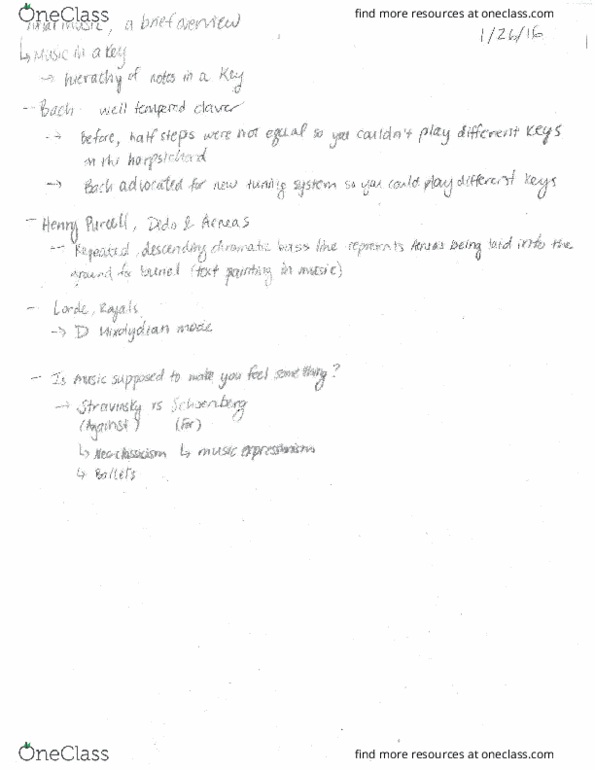 OneClass
find more resources at oneclass.com
music, a brief overview
1/26/16
↳ Music in a key
→ hierachy of notes in a key
- Bach - well tempered claver
→ Before, half steps were not equal so you couldn't play different keys
on the harpsichord
→ Bach advocated for new tuning system so you could play different keys
- Henry Purcell, Dido & Aeneas
→ Repeated, descending chromatic bass line represents Aeneas being laid into the
ground for burial (text painting in music)
- Lorde, Royals
→ D Mixolydian mode
- Is music supposed to make you feel something?
→ Stravinsky vs Schoenberg
(Against) (For)
↳ Neoclassicism ↳ music expressionism
↳ Ballets
OneClass
find more resources at oneclass.com